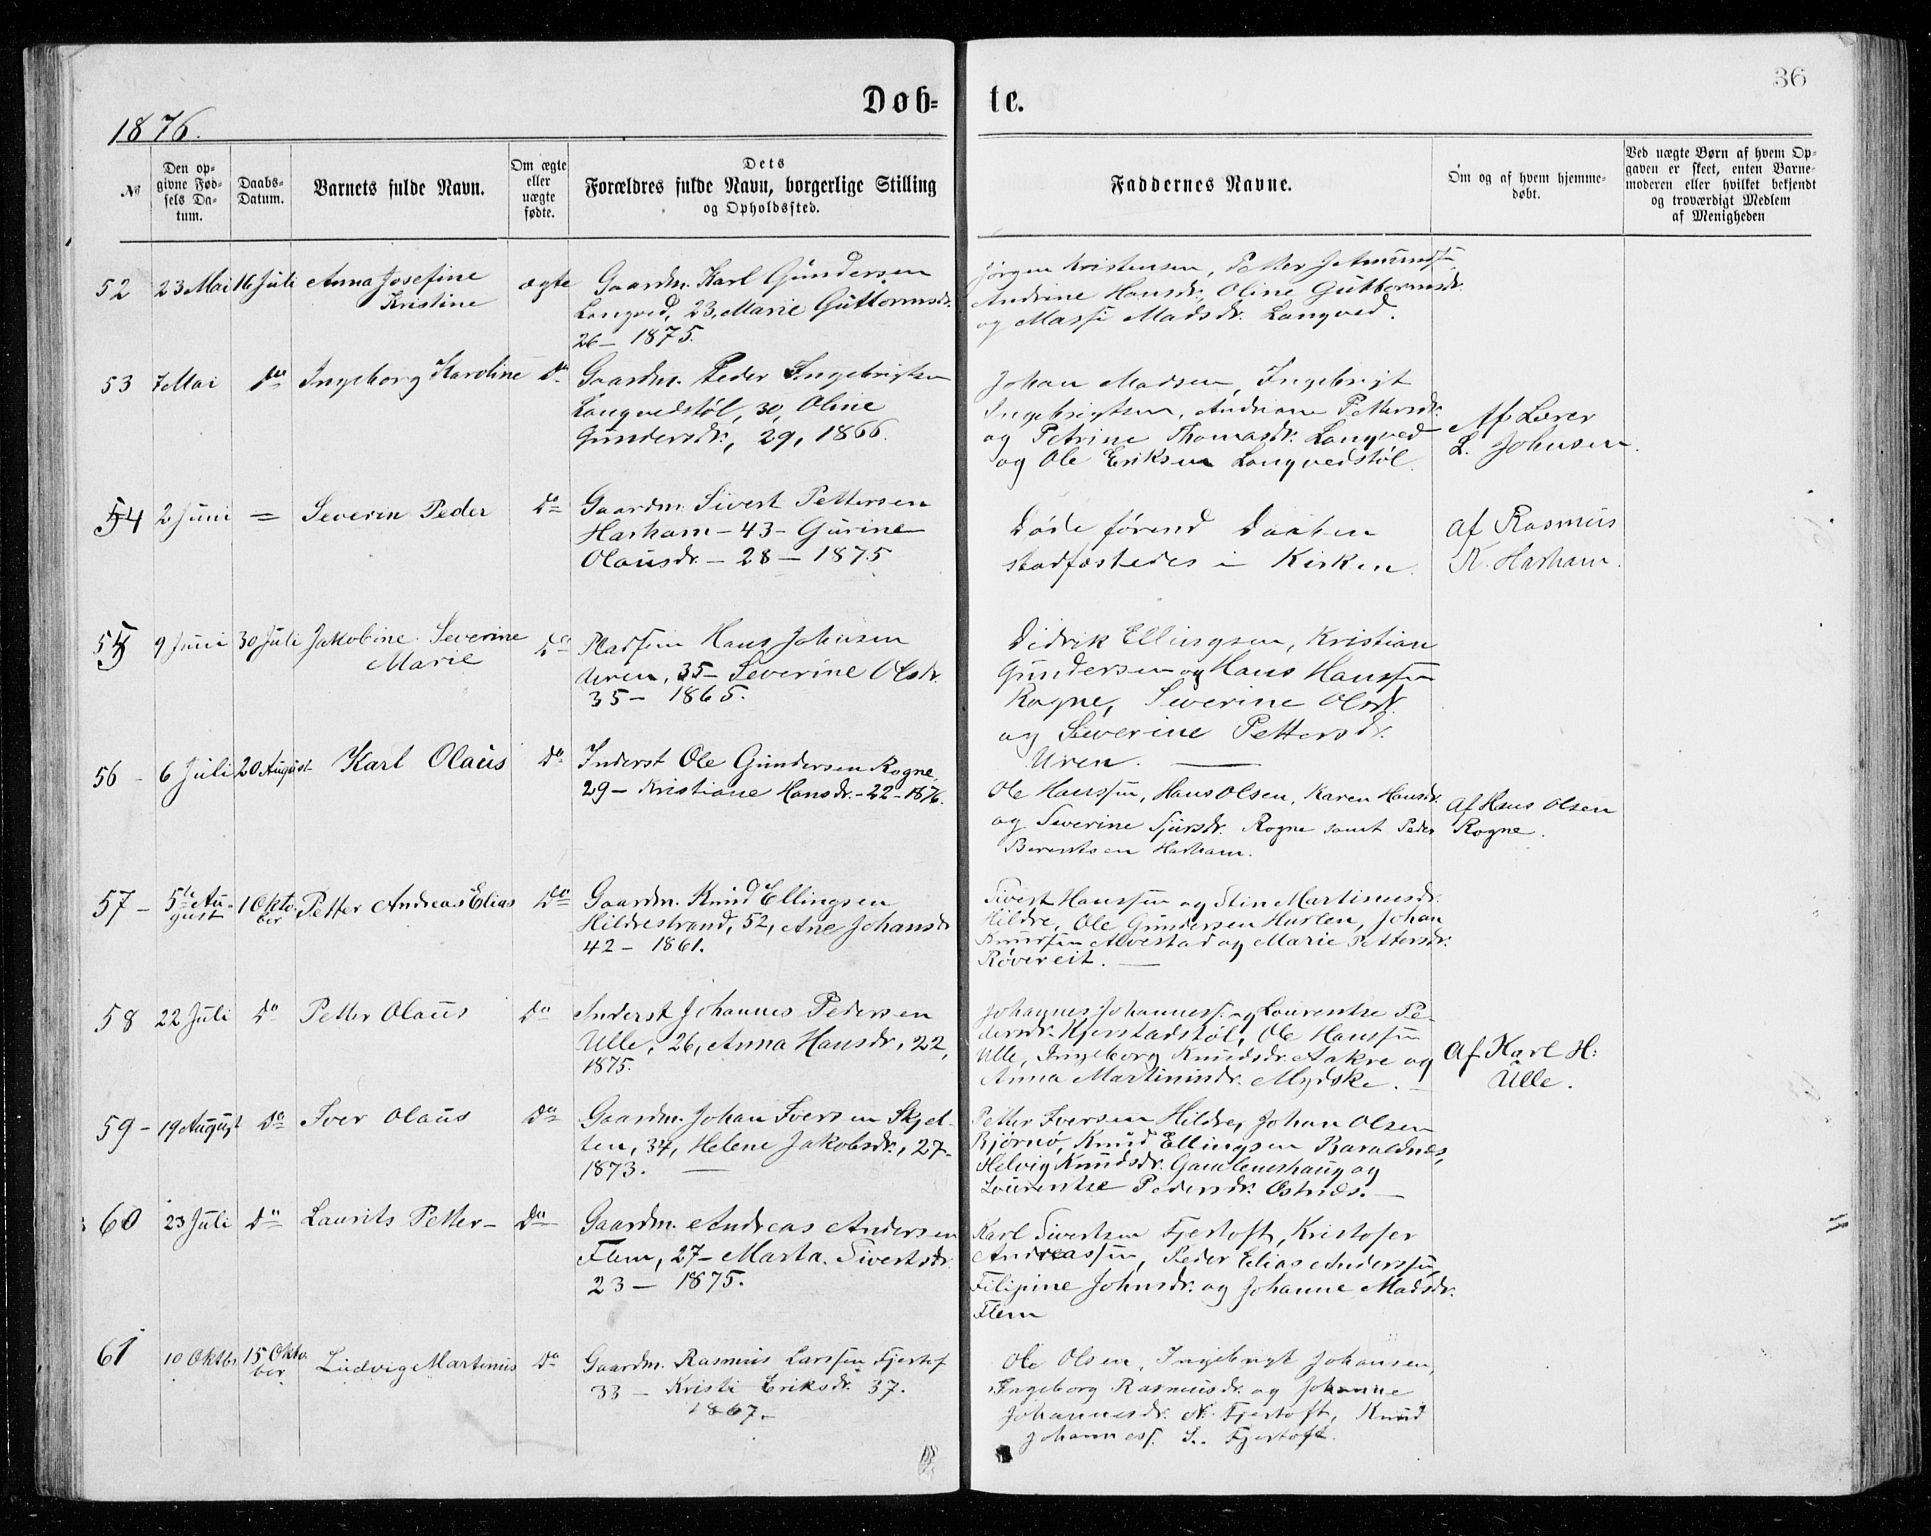 36
Døb- te.
1876.
№
Den op-
givne Fød-
sels Da-
tum.
Daabs-
Datum.
Barnets fulde Navn.
Om ægte
eller
uægte
fødte.
Dets
Forældres fulde Navn, borgerlige Stilling
og Opholdssted.
Faddernes Navne.
Om og af hvem hjemme-
døbt.
Ved uægte Børn af hvem Op-
gaven er skeet, enten Barne-
moderen eller hvilket bekjendt
og troværdigt Medlem
af Menigheden
52 23 Mai 16 Juli Anna Josefine
Kristine
ægte
Gaardm. Karl Gundersen
Longved, 23, Marie Guttormsdr.
26 - 1875.
Jørgen Kristensen, Petter
Andrine Hansdr., Oline Guttormsdr.
og Massi Madsdr. Longved.
53 7 Mai do Ingeborg Karoline do
Gaardm. Peder Ingebrigtsen
Longvedstøl, 30, Oline
Gundersdr., 29, 1866.
Johan Madsen, Ingebrigt
Ingebrigtsen, Andriane Pettersdr.
og Petrine Thomasdr. Longved
og Ole Eriksen Longvedstøl.
Af Lærer
L. Johnsen.
54 2 Juni = Severin Peder do
Gaardm. Sivert Pettersen
Harham - 43 - Gurine
Olausdr. - 28 - 1875
Døde førend Daaben
stadfæstedes i Kirken.
af Rasmus
K. Harham.
55 9 Juni 30 Juli Jakobine Severine
Marie
do
Pladsm Hans Johnsen
Uren, 35 - Severine Olsdr.
35 - 1865.
Didrik Ellingsen, Kristian
Gundersen og Hans Hanssen
Rogne, Severine Olsdr.
og Severine Pettersdr.
Uren.
56 - 6 Juli 20 August Karl Olaus do
Inderst Ole Gundersen Rogne,
29 - Kristiane Hansdr. - 22 - 1876.
Ole Hanssen, Hans Olsen, Karen Hansdr.
og Severine Sjursdr. Rogne samt Peder
Berentsen Harham.
af Hans Olsen
Rogne.
57 - 5te Au-
gust
1 Okto-
ber
Petter Andreas Elias do
Gaardm. Knud Ellingsen
Hildrestrand, 52, Ane Johansdr
42 - 1861.
Sivert Hanssen og Stine Martinusdr.
Hildre, Ole Gundersen Huslen, Johan
Knudsen Alvestad og Marie Pettersdr.
Røvereit.
58 22 Juli do Petter Olaus do
Inderst Johannes Pedersen
Ulle, 26, Anna Hansdr., 22,
1875.
Johannes Johanness. og Laurentse Pe-
dersdr. Kjerstadstøl, Ole Hanssen
Ulle, Ingeborg Knudsdr. Aakre og
Anna Martinusdr. Mydske.
Af Karl H:
Ulle.
59 - 19 August do Iver Olaus do
Gaardm. Johan Iversen Skjel-
ten, 34, Helene Jakobsdr., 27 -
1873.
Petter Iversen Hildre, Johan Olsen
Bjørnø, Knud Ellingsen Baraldnes,
Helvig Knudsdr. Gamlemshaug og
Laurentse Pedersdr. Østnes.
60 23 Juli do Laurits Petter - do
Gaardm. Andreas Andersen
Flem, 27 - Marta Sivertsdr.
23 - 1875.
Karl Sivertsen Fjertoft, Kristofer
Andreassen, Peder Elias Anderssen,
Filipine Johnsdr. og Johanne Madsdr.
Flem
61 10 Oktbr 15 Okto-
ber
Ludvig Martinus do
Gaardm. Rasmus Larssen Fjertof
33 - Kristi Eriksdr. 37.
1867.
Ole Olsen, Ingebrigt Johansen,
Ingeborg Rasmusdr. og Johanne
Johannesdr. N. Fjertoft, Knud
Johanness. S. Fjertoft.